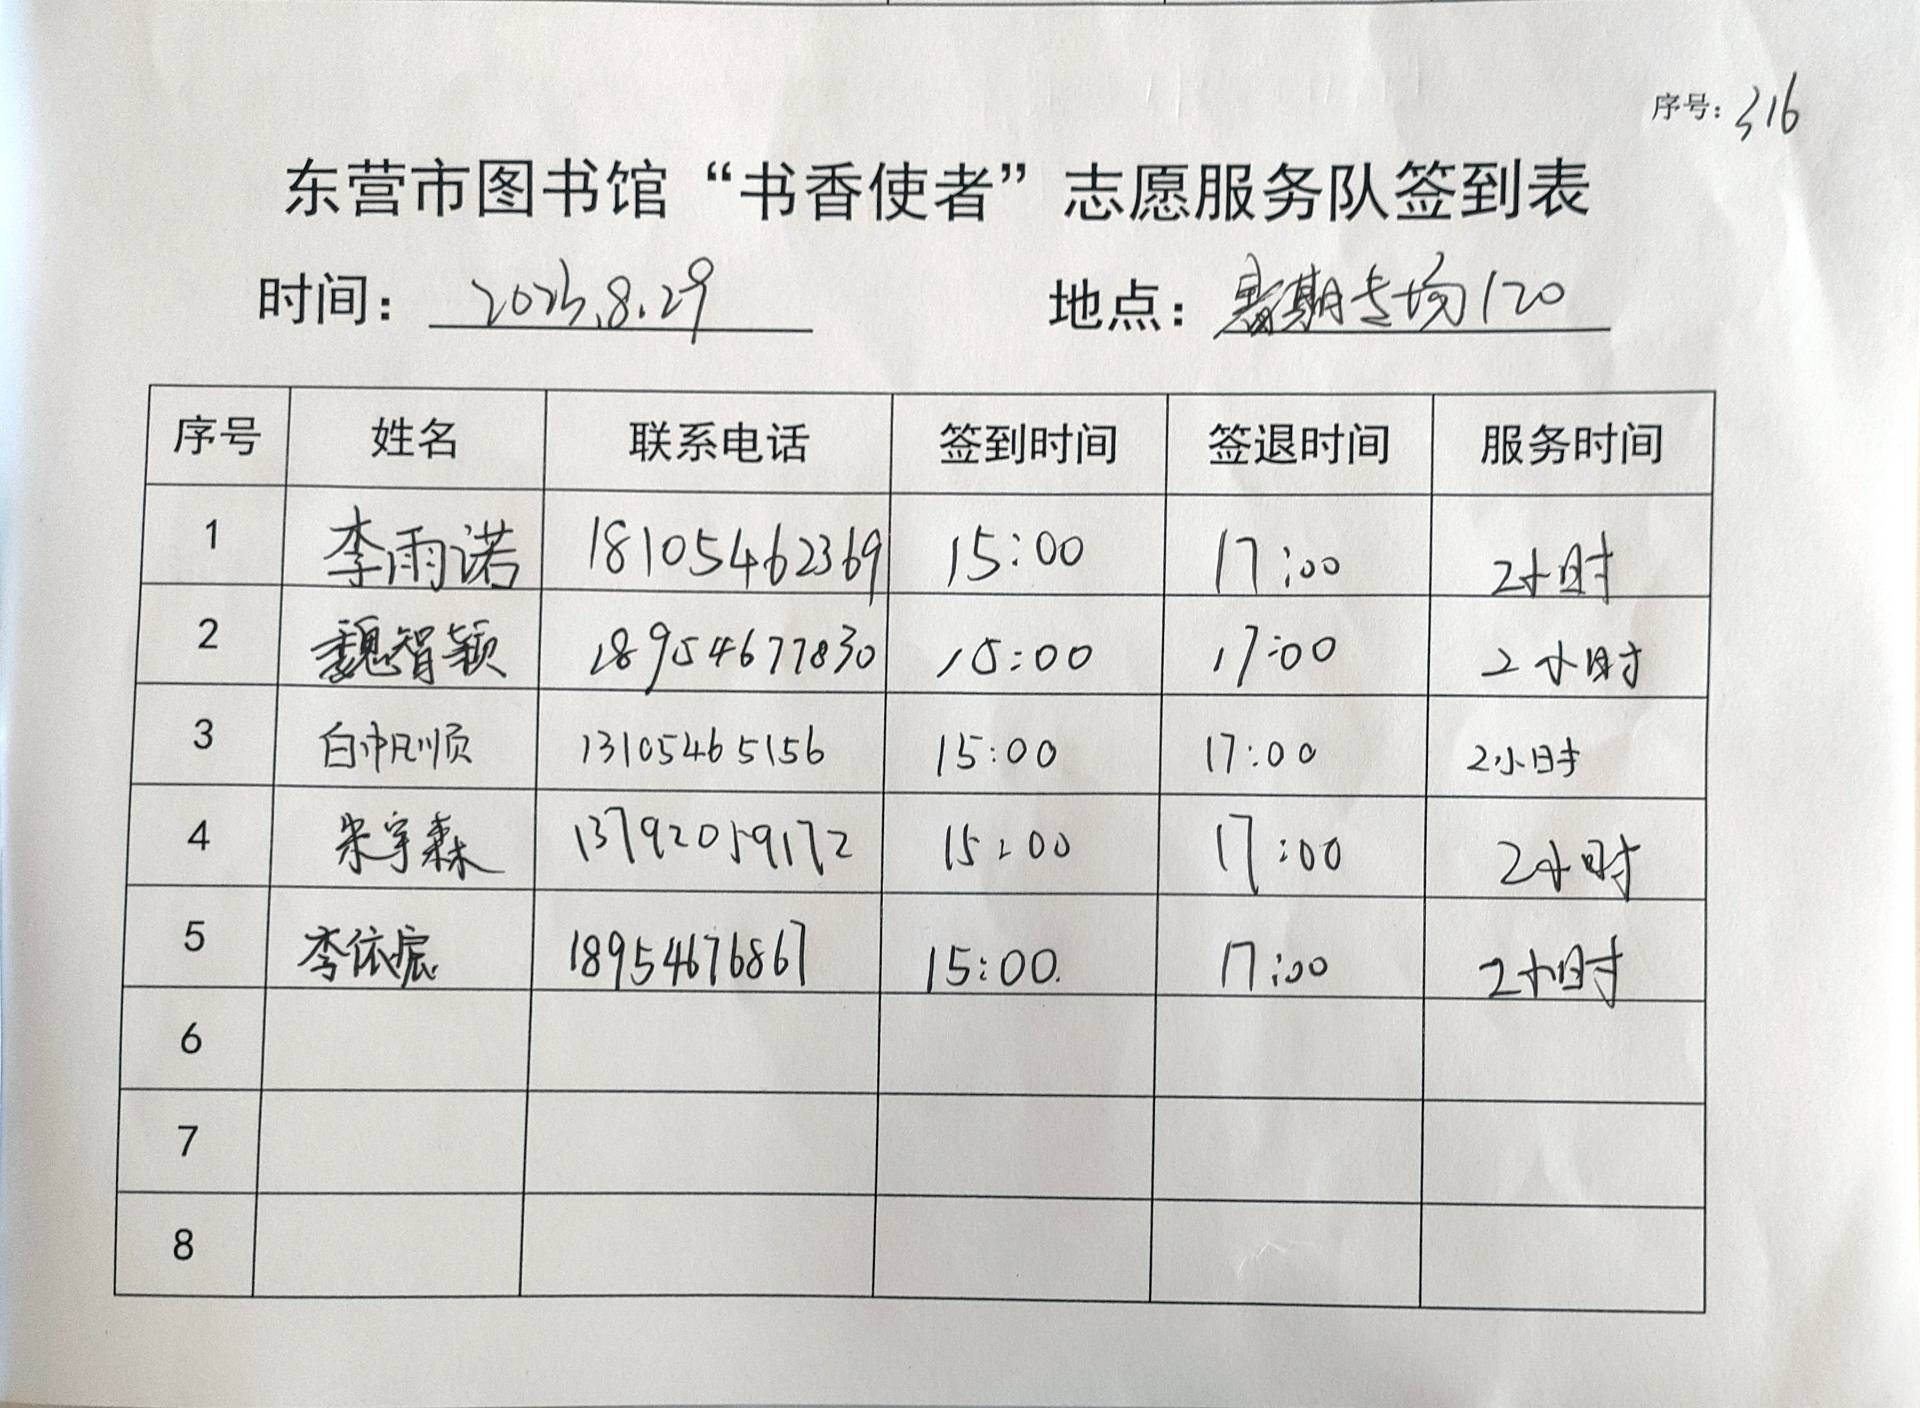 序号：316
东营市图书馆“书香使者”志愿服务队签到表
时间：2023.8.29 地点：暑期专场120
序号 姓名 联系电话 签到时间 签退时间 服务时间
1 李雨诺 18105462369 15:00 17:00 2小时
2 魏智颖 18954677830 15:00 17:00 2小时
3 白帆顺 13105465156 15:00 17:00 2小时
4 朱宇森 13792059172 15:00 17:00 2小时
5 李依宸 18954676867 15:00 17:00 2小时
6
7
8